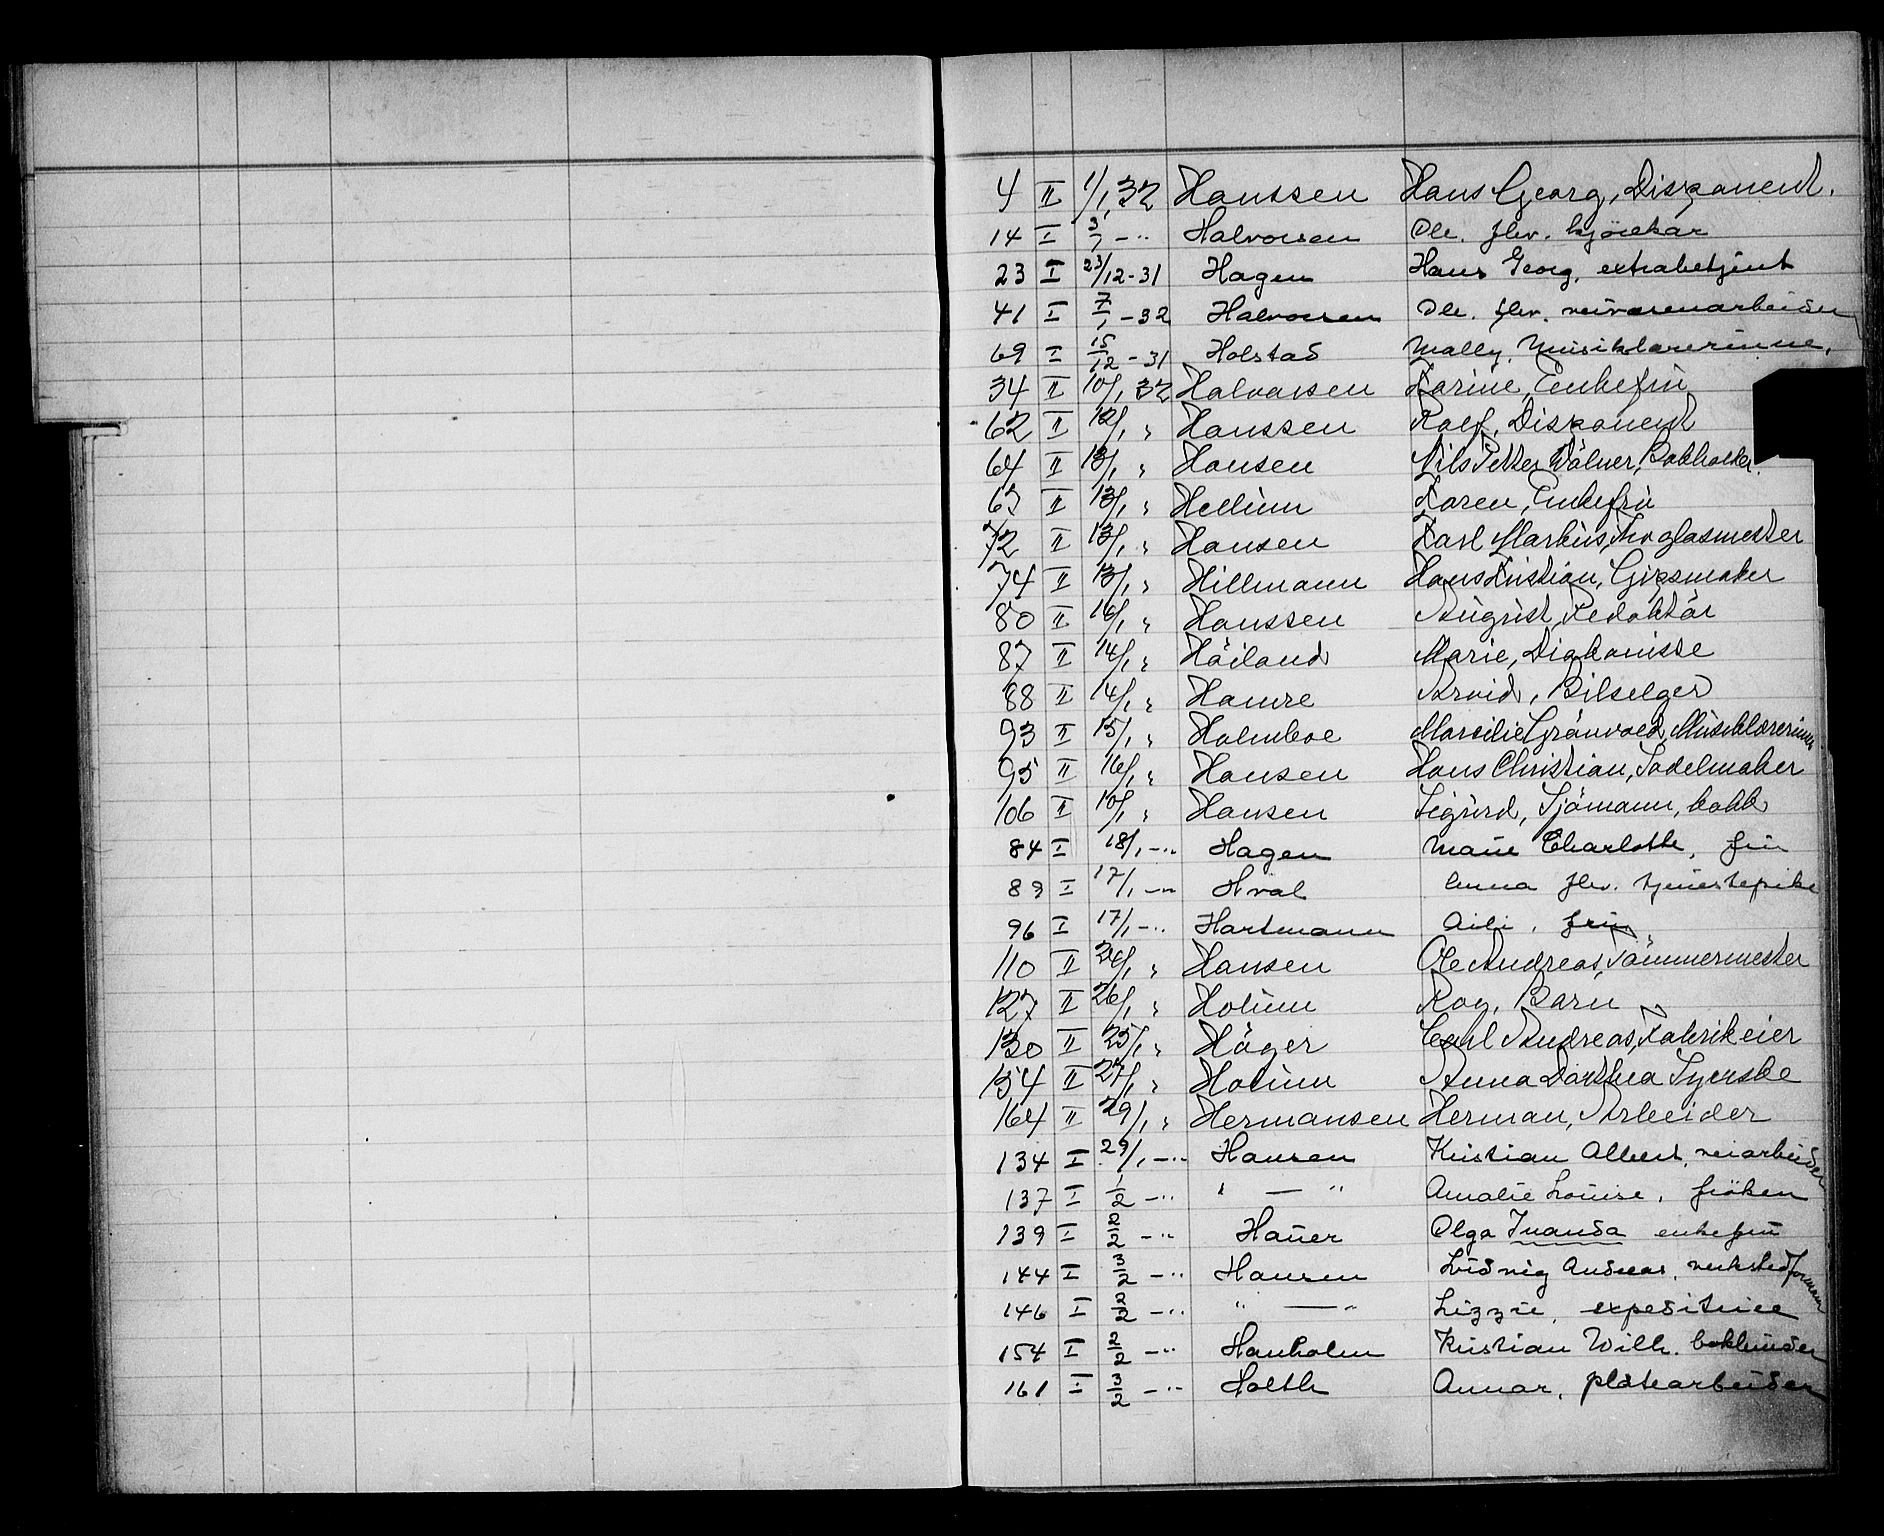 4 II 1/1 32 Hanssen Hans Georg, Disponent.
14 I 3/1 -" Halvorsen Ole. flv. kjörekar
23 I 23/12-31 Hagen Hans Georg, extrabetjent
41 I 7/1 -32 Halvorsen Ole. flv. veivæsenarbeider
69 I 15/12 -31 Holstad Mally, Musiklærerinne,
34 II 10/1 32 Halvorsen Karine, Enkefru
62 II 12/1 " Hanssen Rolf, Disponent
64 II 13/1 " Hansen Nils Petter Bokholder.
63 II 13/1 " Hellum Karen, Enkefru
72 II 13/1 " Hansen Karl Markus, glasmester
74 II 13/1 " Hillmann Hans Kristian, Gipsmaker
80 II 16/1 " Hanssen August, Redaktör
87 II 14/1 " Höiland Marie, Diakonisse
88 II 14/1 " Hamre Arvid, Bilselger
93 II 15/1 " Holmboe Marcelie Grönvold, Musiklærerinne
95 II 16/1 " Hansen Hans Christian, Sadelmaker
106 II 10/1 " Hansen Sigurd, Sjömann, kokk
84 I 18/1 -" Hagen Marie Charlotte, fru
89 I 17/1 -" Hval Anna flv. tjenestepike
96 I 17/1 -" Hartmann Aili, fru
110 II 24/1 " Hansen Ole Andreas, Tömmermester
127 II 26/1 " Holum Roy, Barn
130 II 25/1 " Höger Carl Andreas, Fabrikeier
154 II 27/1 " Holum Anna Dorthea Syerske
164 II 29/1 " Hermansen Herman, Arbeider
134 I 29/1 -" Hansen Kristian Albert, veiarbeider
137 I 1/2 -" " — " Amalie Louise, fröken
139 I 2/2 -" Hauer Olga Ivanda enkefru
144 I 3/2 -" Hansen Ludvig Andreas, verkstedformann
146 I 2/2 -" " — " Lizzie, expeditrice
154 I 2/2 -" Hanholm Kristian Wilh. bokbinder
161 I 3/2 -" Holth Annar, platearbeider